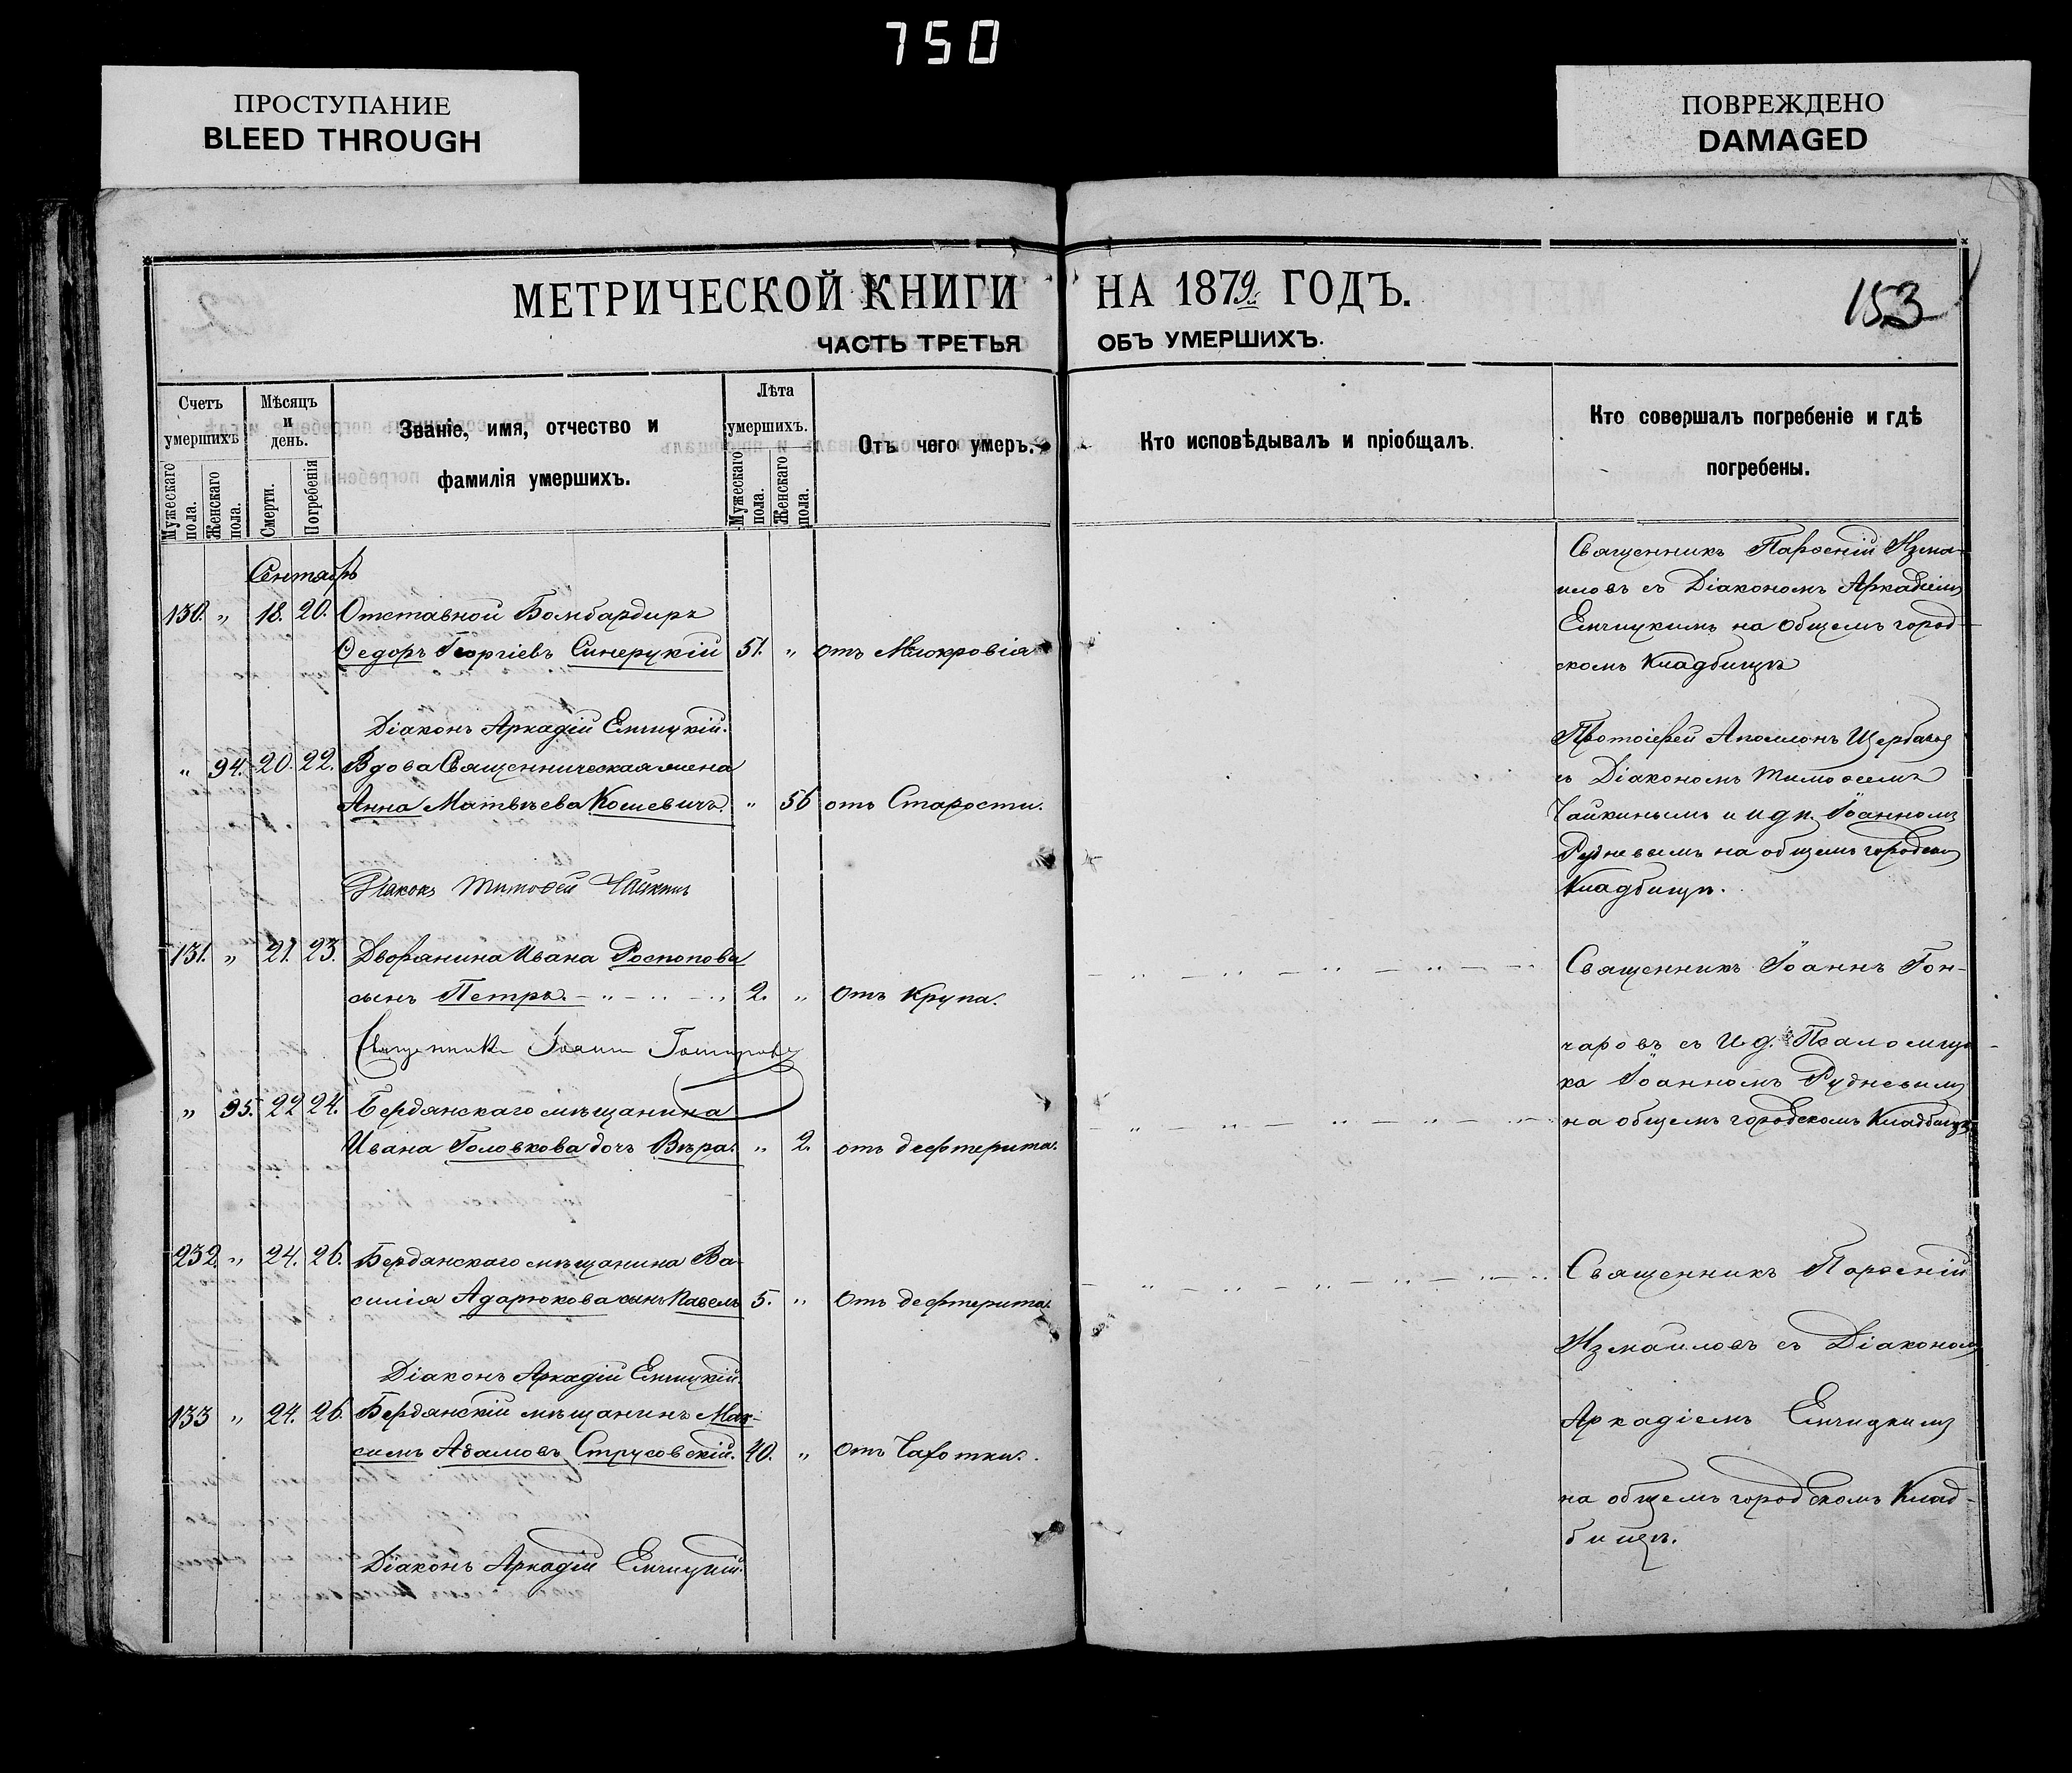 750
ПРОСТУПАНИЕ
BLEED THROUGH
ПОВРЕЖДЕНО
DAMAGED
МЕТРИЧЕСКОЙ КНИГИ НА 1879 ГОДЪ.
153
ЧАСТЬ ТРЕТЬЯ ОБЪ УМЕРШИХЪ.
Счетъ умершихъ
Мужескаго пола.
Женскаго пола.
Мѣсяцъ и день.
Смерти.
Погребенія
Званіе, имя, отчество и
фамилія умершихъ.
Лѣта умершихъ.
Мужескаго пола.
Женскаго пола.
Отъ чего умеръ.
Кто исповѣдывалъ и пріобщалъ.
Кто совершалъ погребеніе и гдѣ
погребены.
Сентябрь
130. „ 18. 20. Отставной Бомбардиръ
Ѳедоръ Георгіевъ Синеруцкій 51. „ отъ Малокровія
Священникъ Парѳеній Изма-
иловъ съ Діакономъ Аркадіемъ
Емчицкимъ на общемъ город-
скомъ кладбищѣ
Діаконъ Аркадій Емчицкій.
„ 94. 20. 22. Вдова Священническая жена
Анна Матвѣева Кошевичъ. „ 56 отъ Старости.
Протоіерей Аполлонъ Щербаковъ
съ Діакономъ Тимоѳеемъ
Чайкинымъ и и д п. Іоанномъ
Рудневымъ на общемъ городском
Кладбищѣ.
Діаконъ Тимоѳей Чайкинъ
131. „ 21. 23. Дворянина Ивана Роспопова
сынъ Петръ. 2. „ отъ Крупа.
Священникъ Іоаннъ Гончаровъ
Священникъ Іоаннъ Гон-
чаровъ съ И.д. Псаломщи-
ка Іоанномъ Рудневымъ
на общемъ городскомъ Кладбищѣ
„ 95. 22 24. Бердянскаго мѣщанина
Ивана Головкова дочь Вѣра. „ 2. отъ дефтерита.
232. „ 24. 26. Бердянскаго мѣщанина Ва-
силія Адарюкова сынъ Павелъ 5. „ отъ дефтерита.
Діаконъ Аркадій Емчицкій.
133 „ 24. 26. Бердянскій мѣщанинъ Мак-
симъ Адамовъ Струсовскій. 40. „ отъ Чахотки.
Діаконъ Аркадій Емчицкій.
Священникъ Парѳеній
Измаиловъ съ Діакономъ
Аркадіемъ Емчицкимъ
на общемъ городскомъ Клад-
бищѣ.